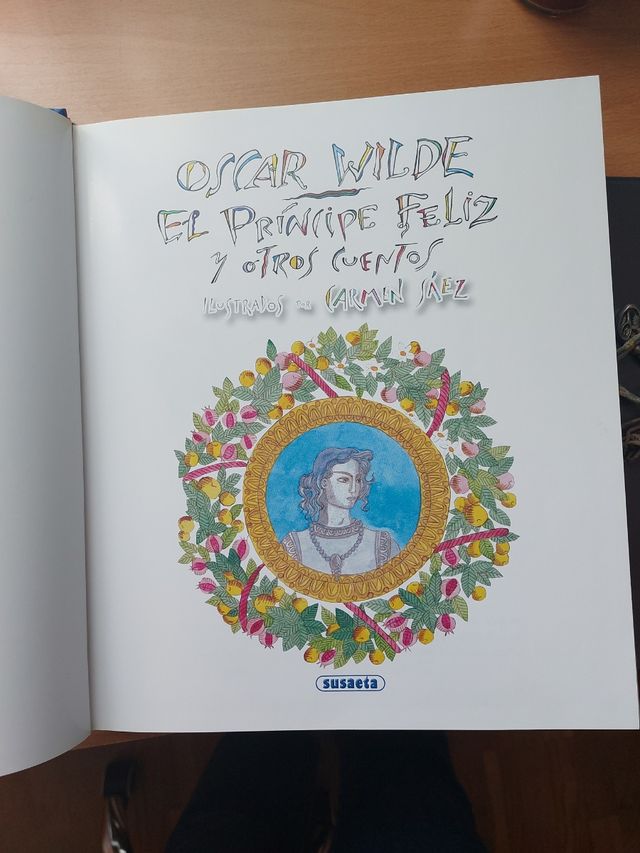 OSCAR WILDE
EL PRÍNCIPE FELIZ
Y OTROS CUENTOS
ILUSTRADOS POR CARMEN SÁEZ
susaeta